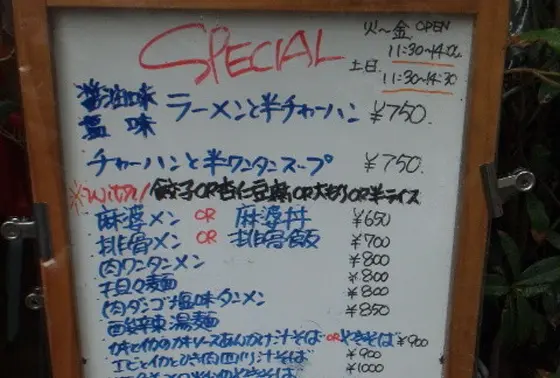 SPECIAL
火～金 OPEN
11:30~14:00
土日
11:30~14:30
醤油味
塩味 ラーメンと半チャーハン ¥750.
チャーハンと半ワンタンスープ ¥750.
※with/ 餃子OR杏仁豆腐OR大盛りOR半ライス
麻婆メン OR 麻婆丼 ¥650
排骨メン OR 排骨飯 ¥700
肉ワンタンメン ¥800
担々麺 ¥800
肉ダンゴ塩味タンメン ¥850
酸辣湯麺
カキとイカのカキソースあんかけ汁そば OR やきそば ¥900
エビとイカと 四川汁そば ¥900
¥1000